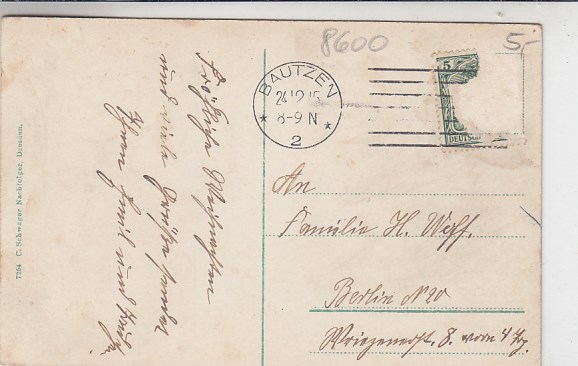 8600
5,-
BAUTZEN
24.12.15
8-9 N
2
5
DEUTSCH
Fröhliche Weihnachten
und viele Grüße sendet
Ihnen Emil und
An
Familie H. Wolff.
Berlin NO
Wriezenerst. 8. vorn 4 Trp.
7354 C. Schwager Nachfolger, Dresden.